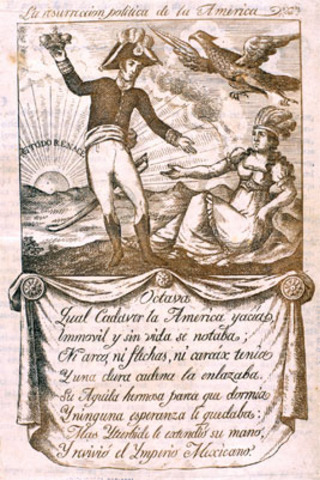 La resurreccion politica de la America
TODO RENACE
Octava
Qual Cadaver la America yacía,
Immovil y sin vida se notaba;
Ni arco, ni flechas, ni carcax tenia
Y una dura cadena la enlazaba.
Su Aguila hermosa parece que dormia
Y ninguna esperanza le quedaba:
Mas Yturbide le extendió su mano,
Y revivió el Ymperio Mexicano.